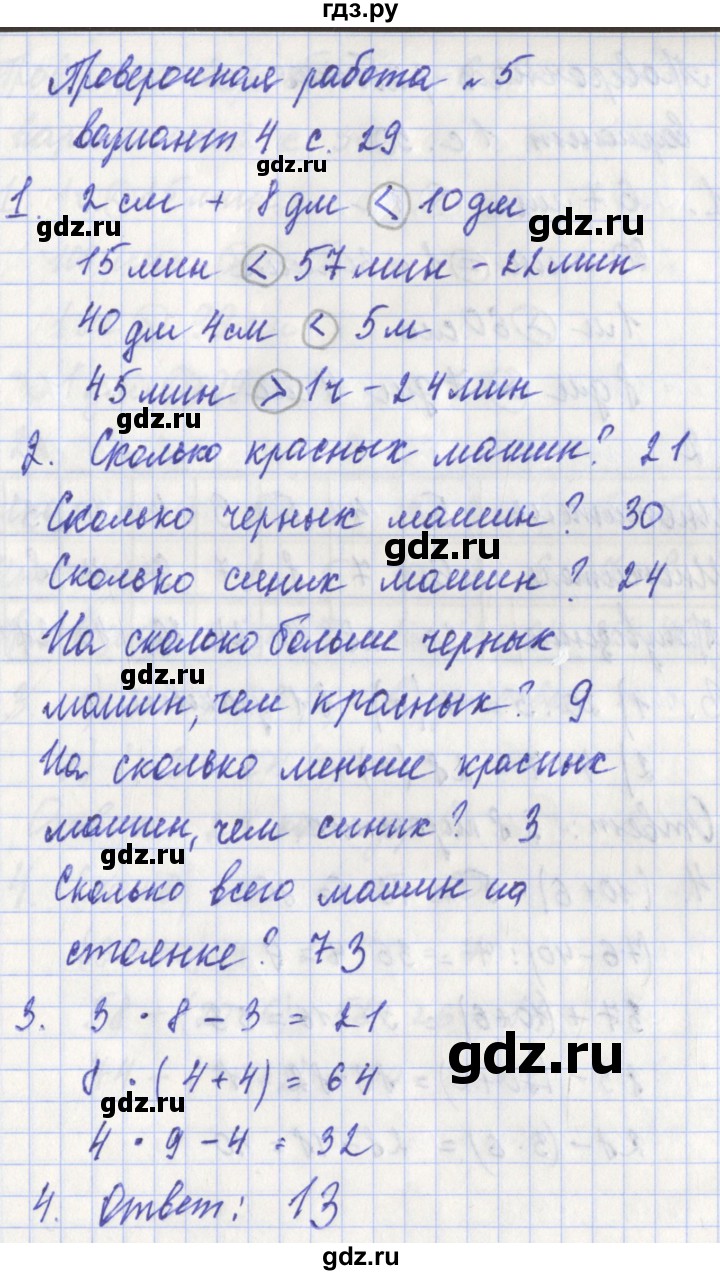 гдз.ру
Проверочная работа № 5
вариант 4 с. 29
gdz.ru
1. 2 см + 8 дм < 10 дм
gdz.ru
gdz.ru
15 мин < 57 мин - 22 мин
40 дм 4 см < 5 м
45 мин > 1ч - 24 мин
gdz.ru
2. Сколько красных машин? 21
Сколько черных машин? 30
gdz.ru
Сколько синих машин? 24
На сколько больше черных
gdz.ru
машин, чем красных? 9
На сколько меньше красных
машин, чем синих? 3
gdz.ru
Сколько всего машин на
стоянке? 73
3. 3 · 8 - 3 = 21
gdz.ru
8 · (4+4) = 64
gdz.ru
4 · 9 - 4 = 32
4. Ответ: 13
gdz.ru